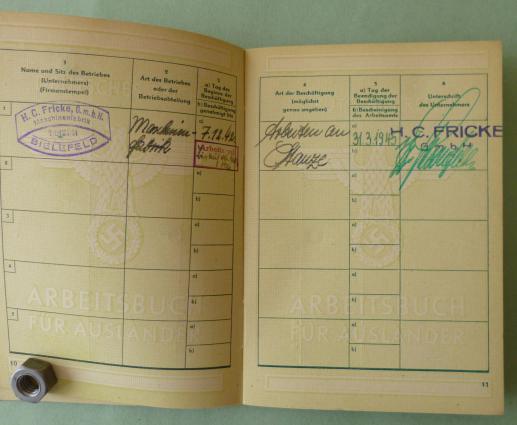 1
Name und Sitz des Betriebes
(Unternehmers)
(Firmenstempel)
2
Art des Betriebes
oder der
Betriebsabteilung
3
a) Tag des
Beginns der
Beschäftigung
b) Bescheinigung
1
H. C. Fricke, G.m.b.H.
Maschinenfabrik
BIELEFELD
Maschinen-
fabrik
a)
7.12.42
2
a)
b)
3
a)
b)
4
a)
b)
5
a)
b)
ARBEITSBUCH
FÜR AUSLÄNDER
10
4
Art der Beschäftigung
(möglichst
genau angeben)
5
a) Tag der
Beendigung der
Beschäftigung
b) Bescheinigung
des Arbeitsamts
6
Unterschrift
des Unternehmers
Arbeiten an
Stanze
a)
31.3.1945
b)
H. C. FRICKE
GmbH
a)
b)
a)
b)
a)
b)
a)
b)
ARBEITSBUCH
FÜR AUSLÄNDER
11